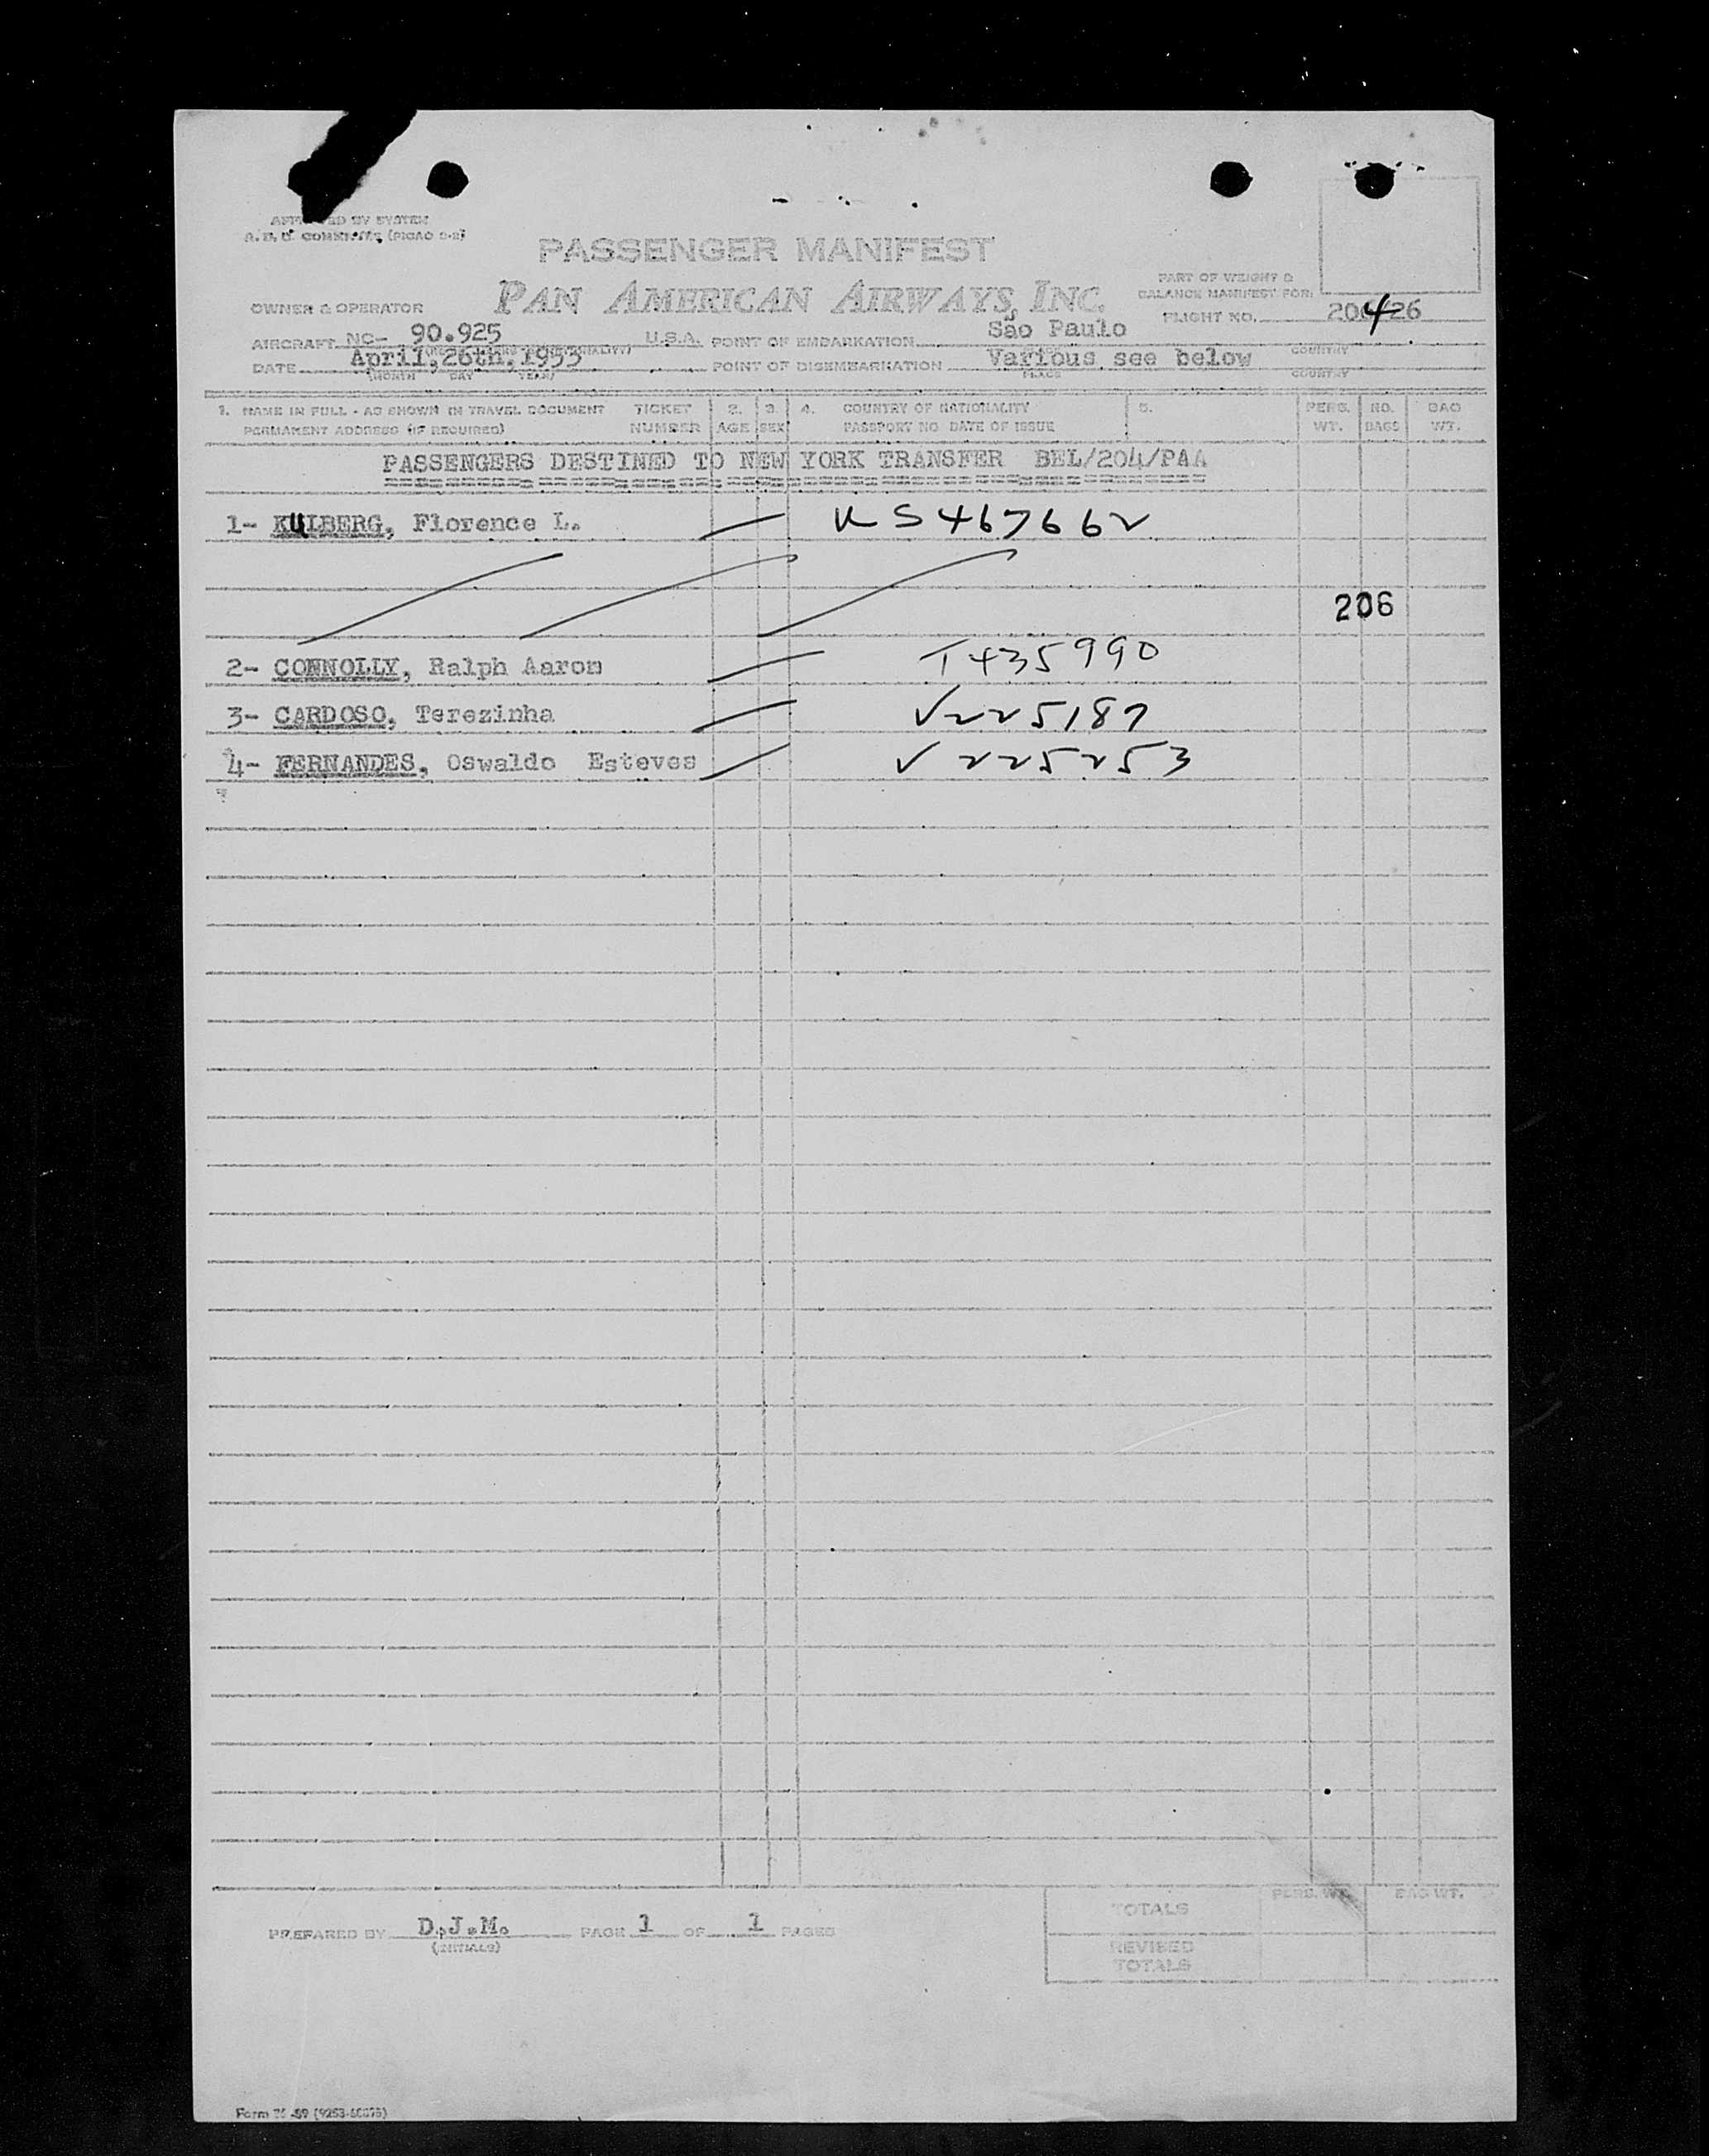 APPROVED BY SYSTEM
PASSENGER MANIFEST
PAN AMERICAN AIRWAYS, INC.
PART OF WEIGHT &
BALANCE MANIFEST FOR:
OWNER & OPERATOR
FLIGHT NO. 204/26
AIRCRAFT NC- 90.925 U.S.A. POINT OF EMBARKATION São Paulo
DATE April, 26th, 1953 POINT OF DISEMBARKATION Various see below COUNTRY
(MONTH DAY YEAR) PLACE COUNTRY
1. NAME IN FULL - AS SHOWN IN TRAVEL DOCUMENT TICKET 2. 3. 4. COUNTRY OF NATIONALITY 5. PERS. NO. BAG
PERMANENT ADDRESS (IF REQUIRED) NUMBER AGE SEX PASSPORT NO DATE OF ISSUE WT. BAGS WT.
PASSENGERS DESTINED TO NEW YORK TRANSFER BEL/204/PAA
1- KULBERG, Florence L. KS467662
206
2- CONNOLLY, Ralph Aaron T435990
3- CARDOSO, Terezinha V225187
4- FERNANDES, Oswaldo Esteves V225253
PERS. WT. BAG WT.
TOTALS
PREPARED BY D.J.M. PAGE 1 OF 1 PAGES
(INITIALS)
REVISED
TOTALS
Form